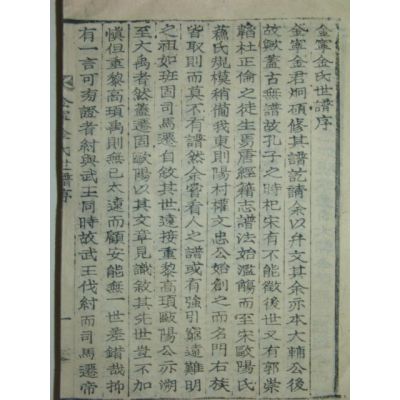 金寧金氏世譜序
金寧金君炯碩修其譜訖請余以弁文其余亦本大輔公後
故歟蓋古無譜故孔子之時杞宋有不能徵後世又有郭崇
韜杜正倫之徒生焉唐經籍志譜法始濫觴而至宋歐陽氏
蘓氏規模稍備我東則陽村權文忠公始創之而名門右族
皆取則而莫不有譜然余嘗看人之譜或有強引窮遠難明
之祖如班固司馬遷自敘其世遠接重黎高頊歐陽公亦溯
至大禹者然蓋遷固歐陽以其文章見識敘其先世豈不加
愼但重黎高頊禹則無已太遠而顧安能無一世差錯哉抑
有一言可旁證者紂與武王同時故武王伐紂而司馬遷帝
金寧金氏世譜序
一